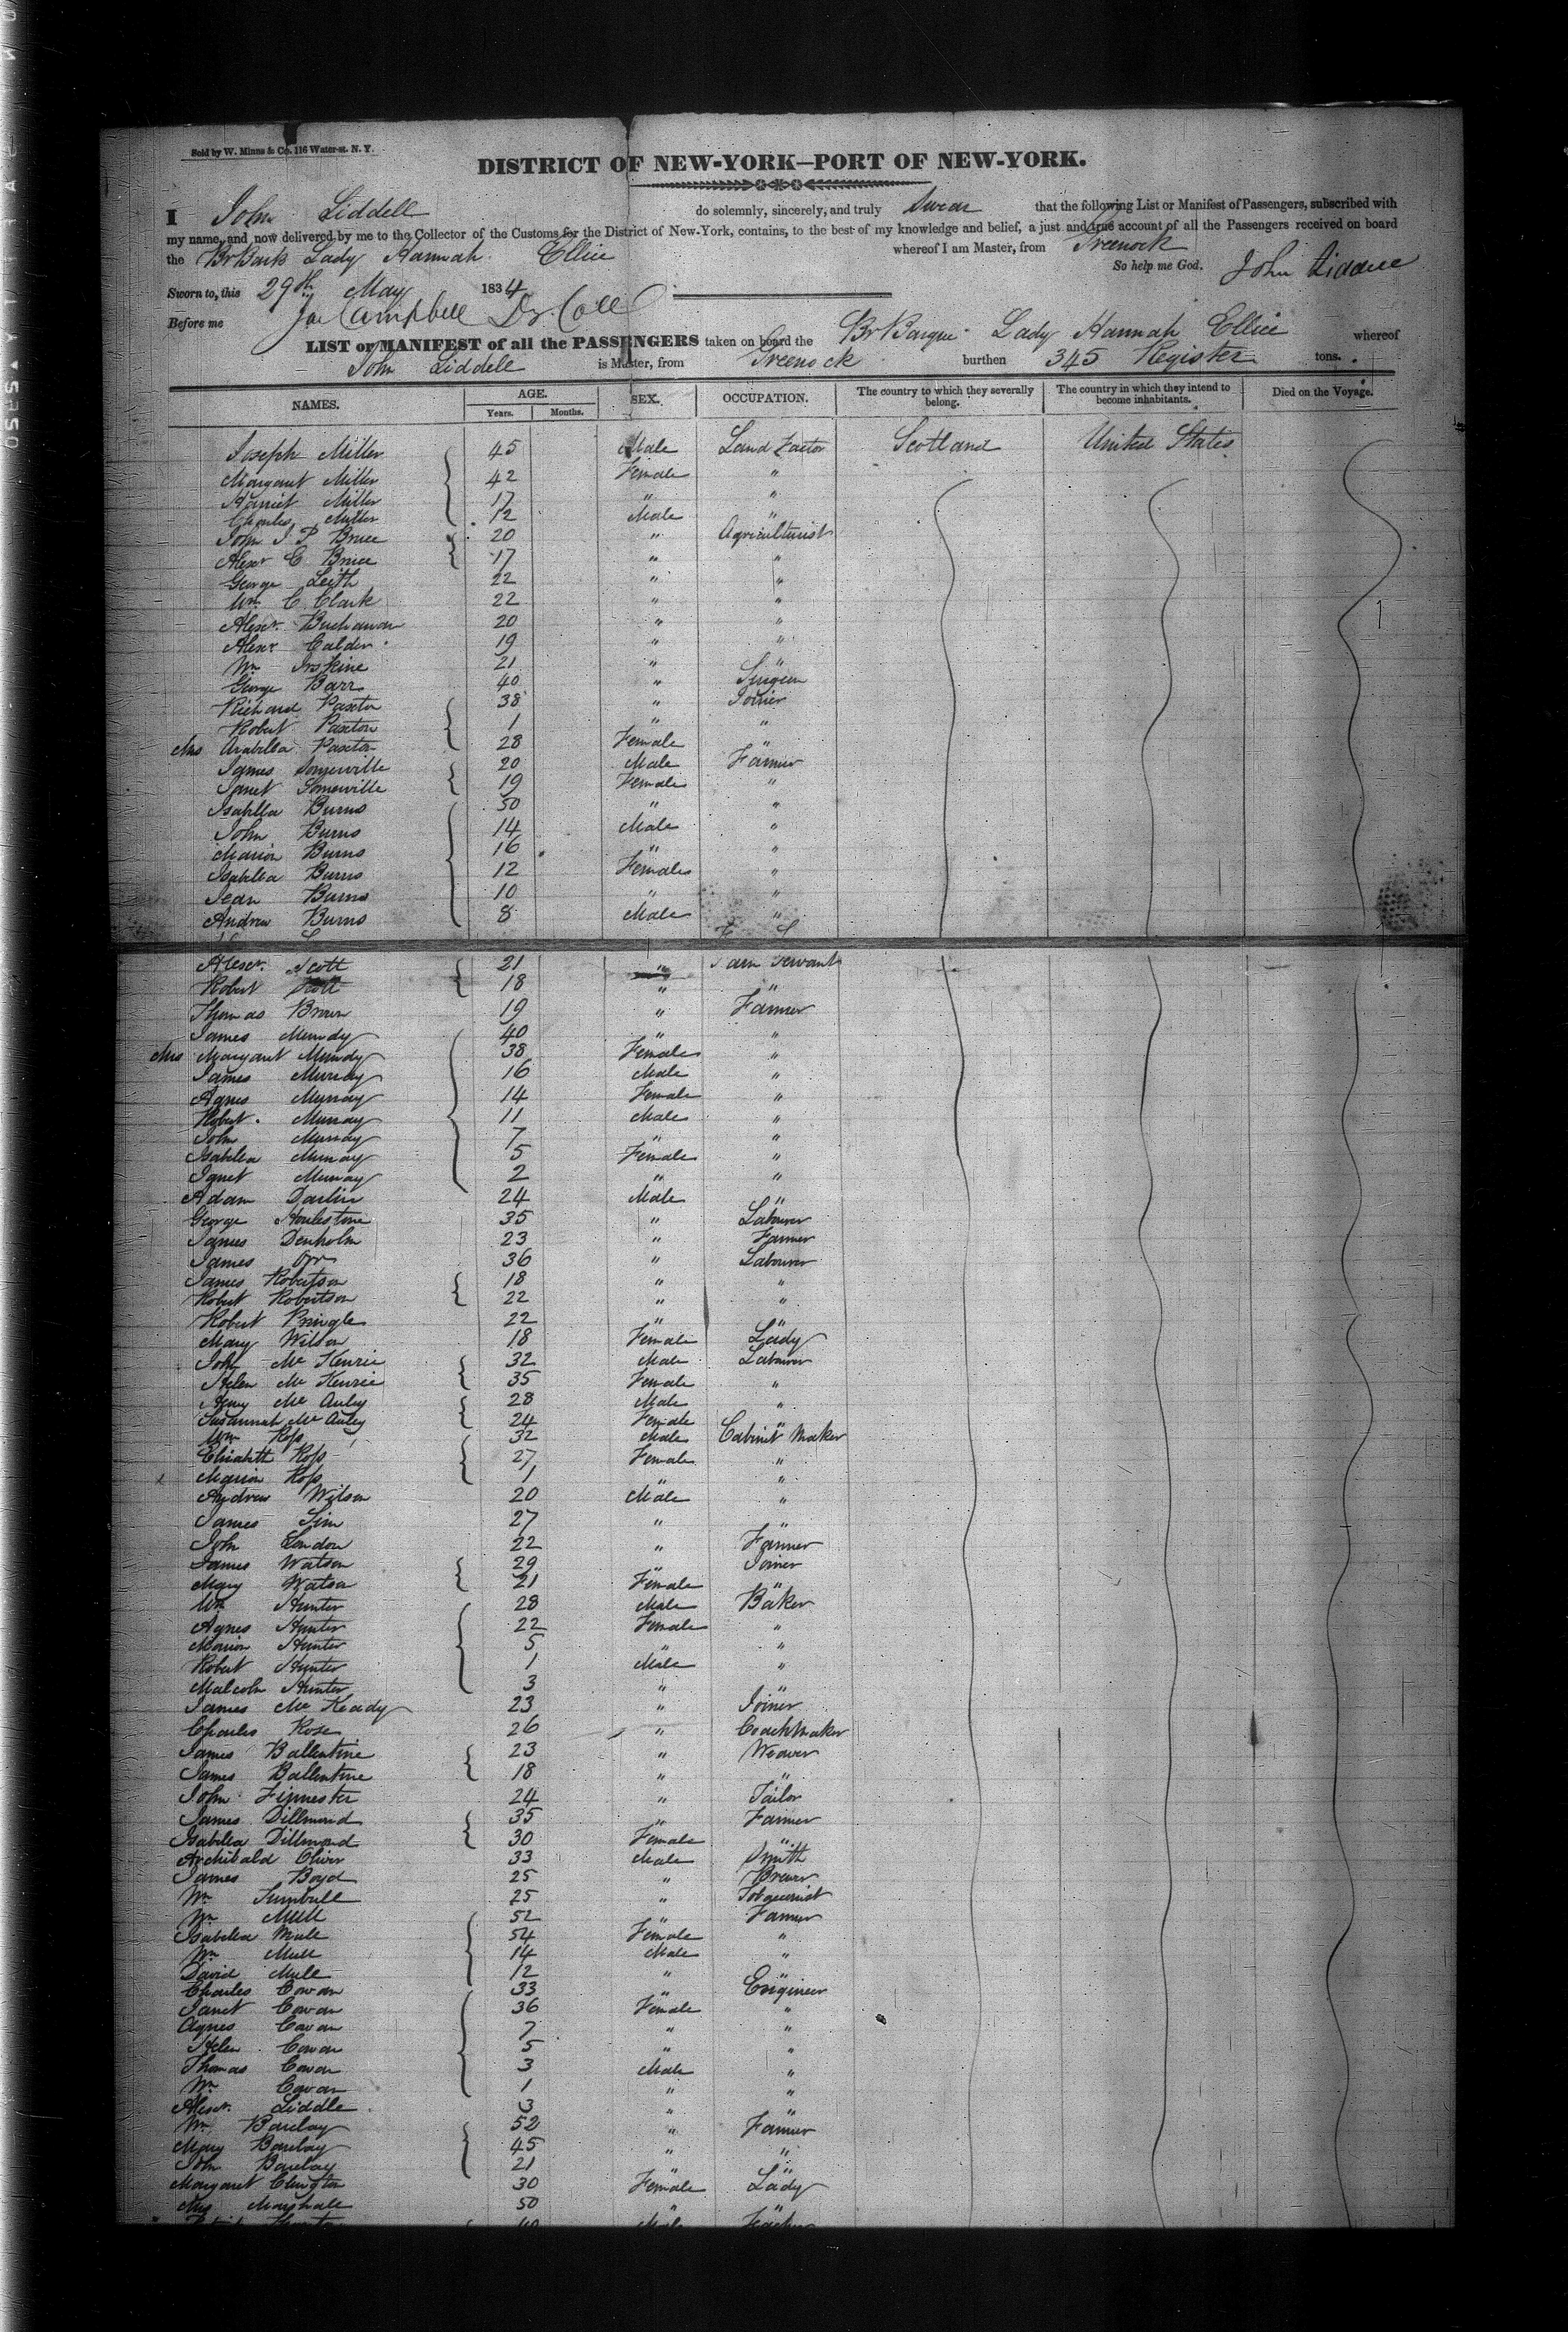 Sold by W. Minns & Co. 116 Water-st. N. Y.
DISTRICT OF NEW-YORK—PORT OF NEW-YORK.
I John Liddell do solemnly, sincerely, and truly Swear that the following List or Manifest of Passengers, subscribed with
my name, and now delivered by me to the Collector of the Customs for the District of New-York, contains, to the best of my knowledge and belief, a just and true account of all the Passengers received on board
the Br Bark Lady Hannah Ellice whereof I am Master, from Greenock
So help me God. John Liddell
Sworn to, this 29th May 1834
Before me Campbell Dy. Coll
LIST or MANIFEST of all the PASSENGERS taken on board the Br Barque Lady Hannah Ellice whereof
John Liddell is Master, from Greenock burthen 345 Register tons.
NAMES. AGE. Years. Months. SEX. OCCUPATION. The country to which they severally belong. The country in which they intend to become inhabitants. Died on the Voyage.
Joseph Miller 45 Male Land Factor Scotland United States
Margaret Miller 42 Female "
Harriet Miller 17 " "
Charles Miller 12 Male "
John J. P. Bruce 20 " Agriculturist
Alexr C Bruce 17 " "
George Leith 22 " "
Wm C. Clark 22 " "
Alexr. Buchanan 20 " "
Alexr Calder 19 " "
Wm Erskine 21 " "
George Barr 40 " Surgeon
Richard Paxton 38 " Joiner
Robert Paxton 1 " "
Mrs Arabella Paxton 28 Female "
James Somerville 20 Male Farmer
Janet Somerville 19 Female "
Isabella Burns 50 " "
John Burns 14 Male "
Marion Burns 16 " "
Isabella Burns 12 Females "
Jean Burns 10 " "
Andrew Burns 8 Male "
Alexr. Scott 21 " Farm Servant
Robert Scott 18 " "
Thomas Brown 19 " Farmer
James Murray 40 " "
Mrs Margaret Murray 38 Female "
James Murray 16 Male "
Agnes Murray 14 Female "
Robert. Murray 11 Male "
John Murray 7 " "
Isabella Murray 5 Female "
Janet Murray 2 " "
Adam Darlin 24 Male "
George 35 " Labourer
James Denholm 23 " Farmer
James Orr 36 " Labourer
James Robertson 18 " "
Robert Robertson 22 " "
Robert Pringle 22 " "
Mary Wilson 18 Female Lady
John Mc Kenzie 32 Male Labourer
Helen Mc Kenzie 35 Female "
Henry Mc Auley 28 Male "
Susannah Mc Auley 24 Female "
Wm Ross 32 Male Cabinet Maker
Elizabeth Ross 27 Female "
Marion Ross 1 " "
Andrew Wilson 20 Male "
James Sim 27 " "
John London 22 " Farmer
James Watson 29 " Joiner
Mary Watson 21 Female "
Wm Hunter 28 Male Baker
Agnes Hunter 22 Female "
Marion Hunter 5 " "
Robert Hunter 1 Male "
Malcolm Hunter 3 " "
James Mc Keady 23 " Joiner
Charles Rose 26 " Coachmaker
James Ballentine 23 " Weaver
James Ballentine 18 " "
John Fimester 24 " Tailor
James Dillmond 35 " Farmer
Isabella Dillmond 30 Female "
Archibald Oliver 33 Male Smith
James Boyd 25 " Brewer
Wm Turnbull 25 " Tobacconist
Wm Mull 52 " Farmer
Isabella Mull 54 Female "
Wm Mull 14 Male "
David Mull 12 " "
Charles Cowan 33 " Engineer
Janet Cowan 36 Female "
Agnes Cowan 7 " "
Helen Cowan 5 " "
Thomas Cowan 3 Male "
Wm Cowan 1 " "
Alexr. Liddle 3 " "
Wm Barclay 52 " Farmer
Mary Barclay 45 " "
John Barclay 21 " "
Margaret 30 Female Lady
Mrs Marshall 50 " "